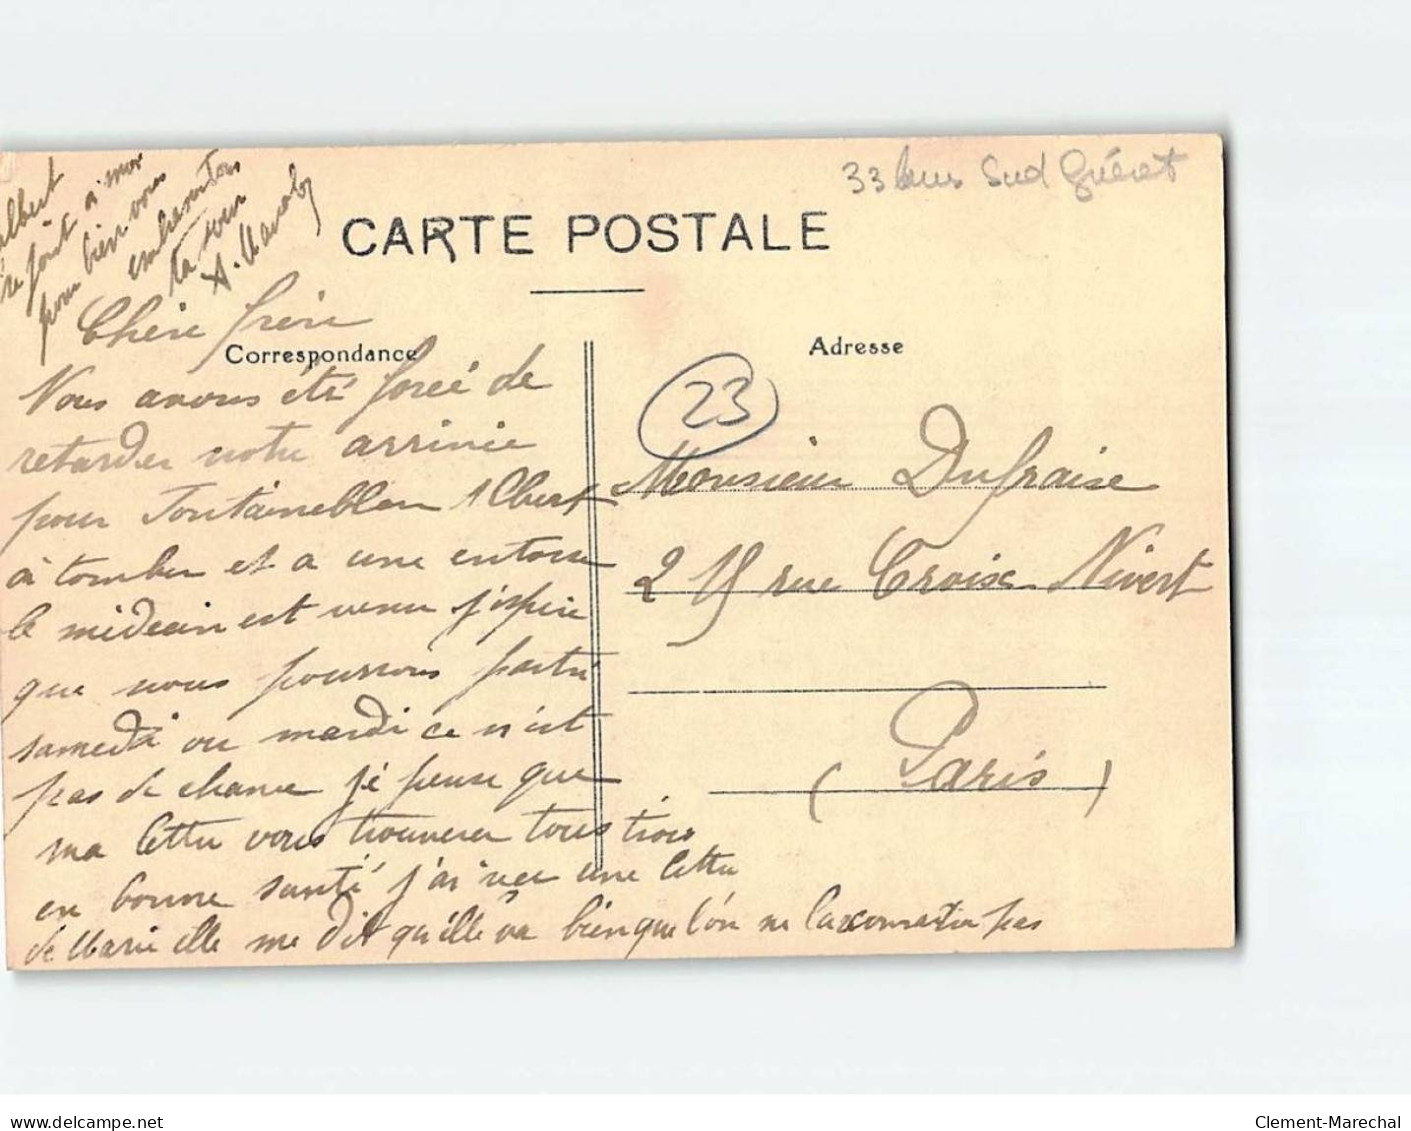 33 km Sud Guéret
CARTE POSTALE
Correspondance
Adresse
23
Chère frère
Nous avons été forcé de
retarder notre arrivié
pour Fontainebleau Albert
à tomber et a une entorse
le médecin est venu j'éspère
que nous pourrons partir
samedi ou mardi ce n'est
pas de chance jé pense que
ma lettre vous trouverer tous trois
en bonne santé j'ai reçu une lettre
de Marie elle me dit qu'elle va bien que l'on ne la pas
albert
se joint à moi
pour bien vous
embrasser tous
ta sœur
A.
Monsieur Dufraise
215 rue Croix Nivert
(Paris)
delcampe.net
Clement-Marechal